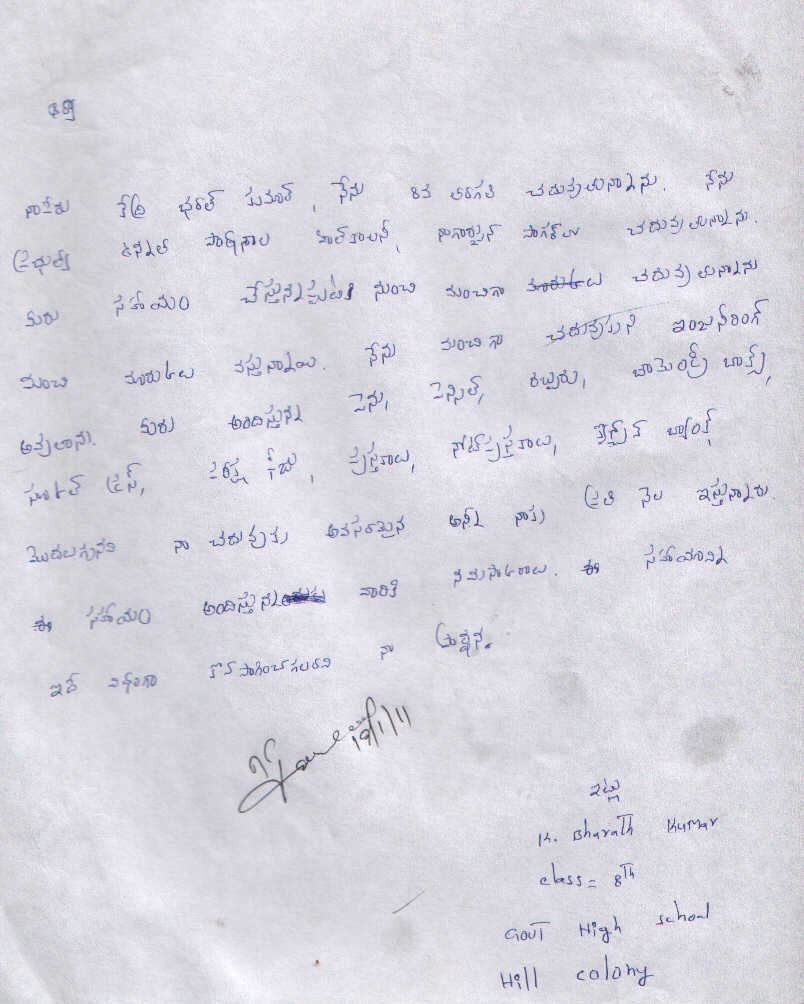 నాపేరు కేత్రి భరత్ కుమార్, నేను 8వ తరగతి చదువుతున్నాను. నేను
ప్రభుత్వ ఉన్నత పాఠశాల హిల్‌కాలనీ, నాగార్జున సాగర్‌లు చదువుతున్నాను.
మీరు సహాయం చేస్తున్నప్పటికి నుంచి మంచిగా చదువుతున్నాను
మంచి మారుకులు వస్తున్నాయి. నేను మంచిగా చదువుకుని ఇంజనీరింగ్
అవుతాను. మీరు అందిస్తున్న పెన్ను, పెన్సిల్, రబ్బరు, జామెంట్రీ బాక్స్,
స్కూల్ డ్రస్, పరీక్ష ఫీజు, పుస్తకాలు, నోట్‌పుస్తకాలు, బ్యాంక్
మొదలుగునవి నా చదువుకు అవసరమైన అన్నీ నాకు ప్రతి నెల ఇస్తున్నారు.
ఈ సహాయం అందిస్తున్న వారికి నమస్కారాలు. ఈ సహాయాన్ని
ఇదే విధంగా కొనసాగించగలరని నా ప్రార్థన.
19/1/11
ఇట్లు
K. Bharath Kumar
class = 8Th
GOVT High school
Hill colony